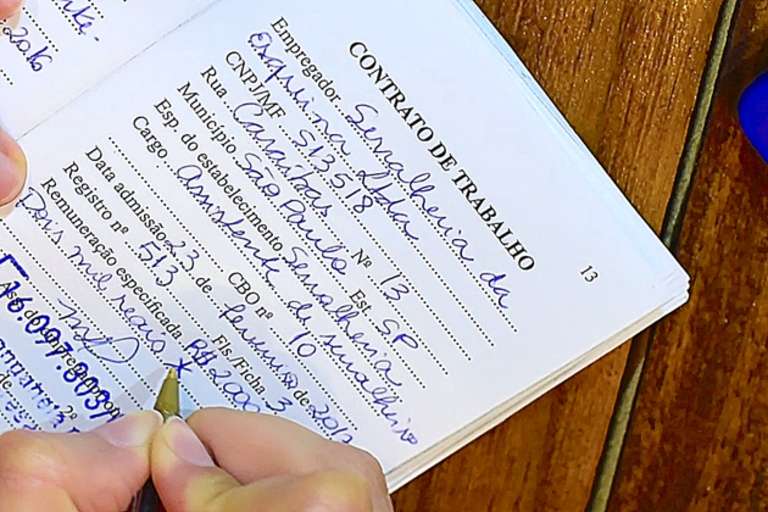 2016
13
CONTRATO DE TRABALHO
Empregador Serralheria da
Esquina Ltda
CNPJ/MF 513518
Rua Caraíbas Nº 13
Município São Paulo Est. SP
Esp. do estabelecimento Serralheria
Cargo Assistente de serralheiro
CBO nº 10
Data admissão 23 de fevereiro de 2017
Registro nº 513 Fls./Ficha 3
Remuneração especificada R$ 2000
Dois mil reais X
16.097.803
2º